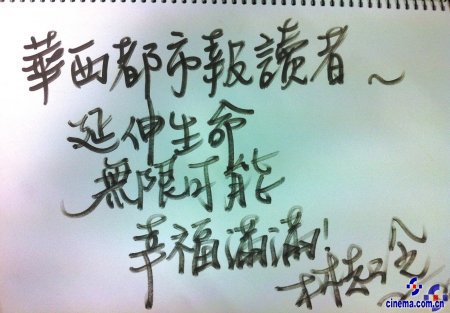 華西都市報讀者~
延伸生命
無限可能
幸福滿滿!
林超
cinema.com.cn